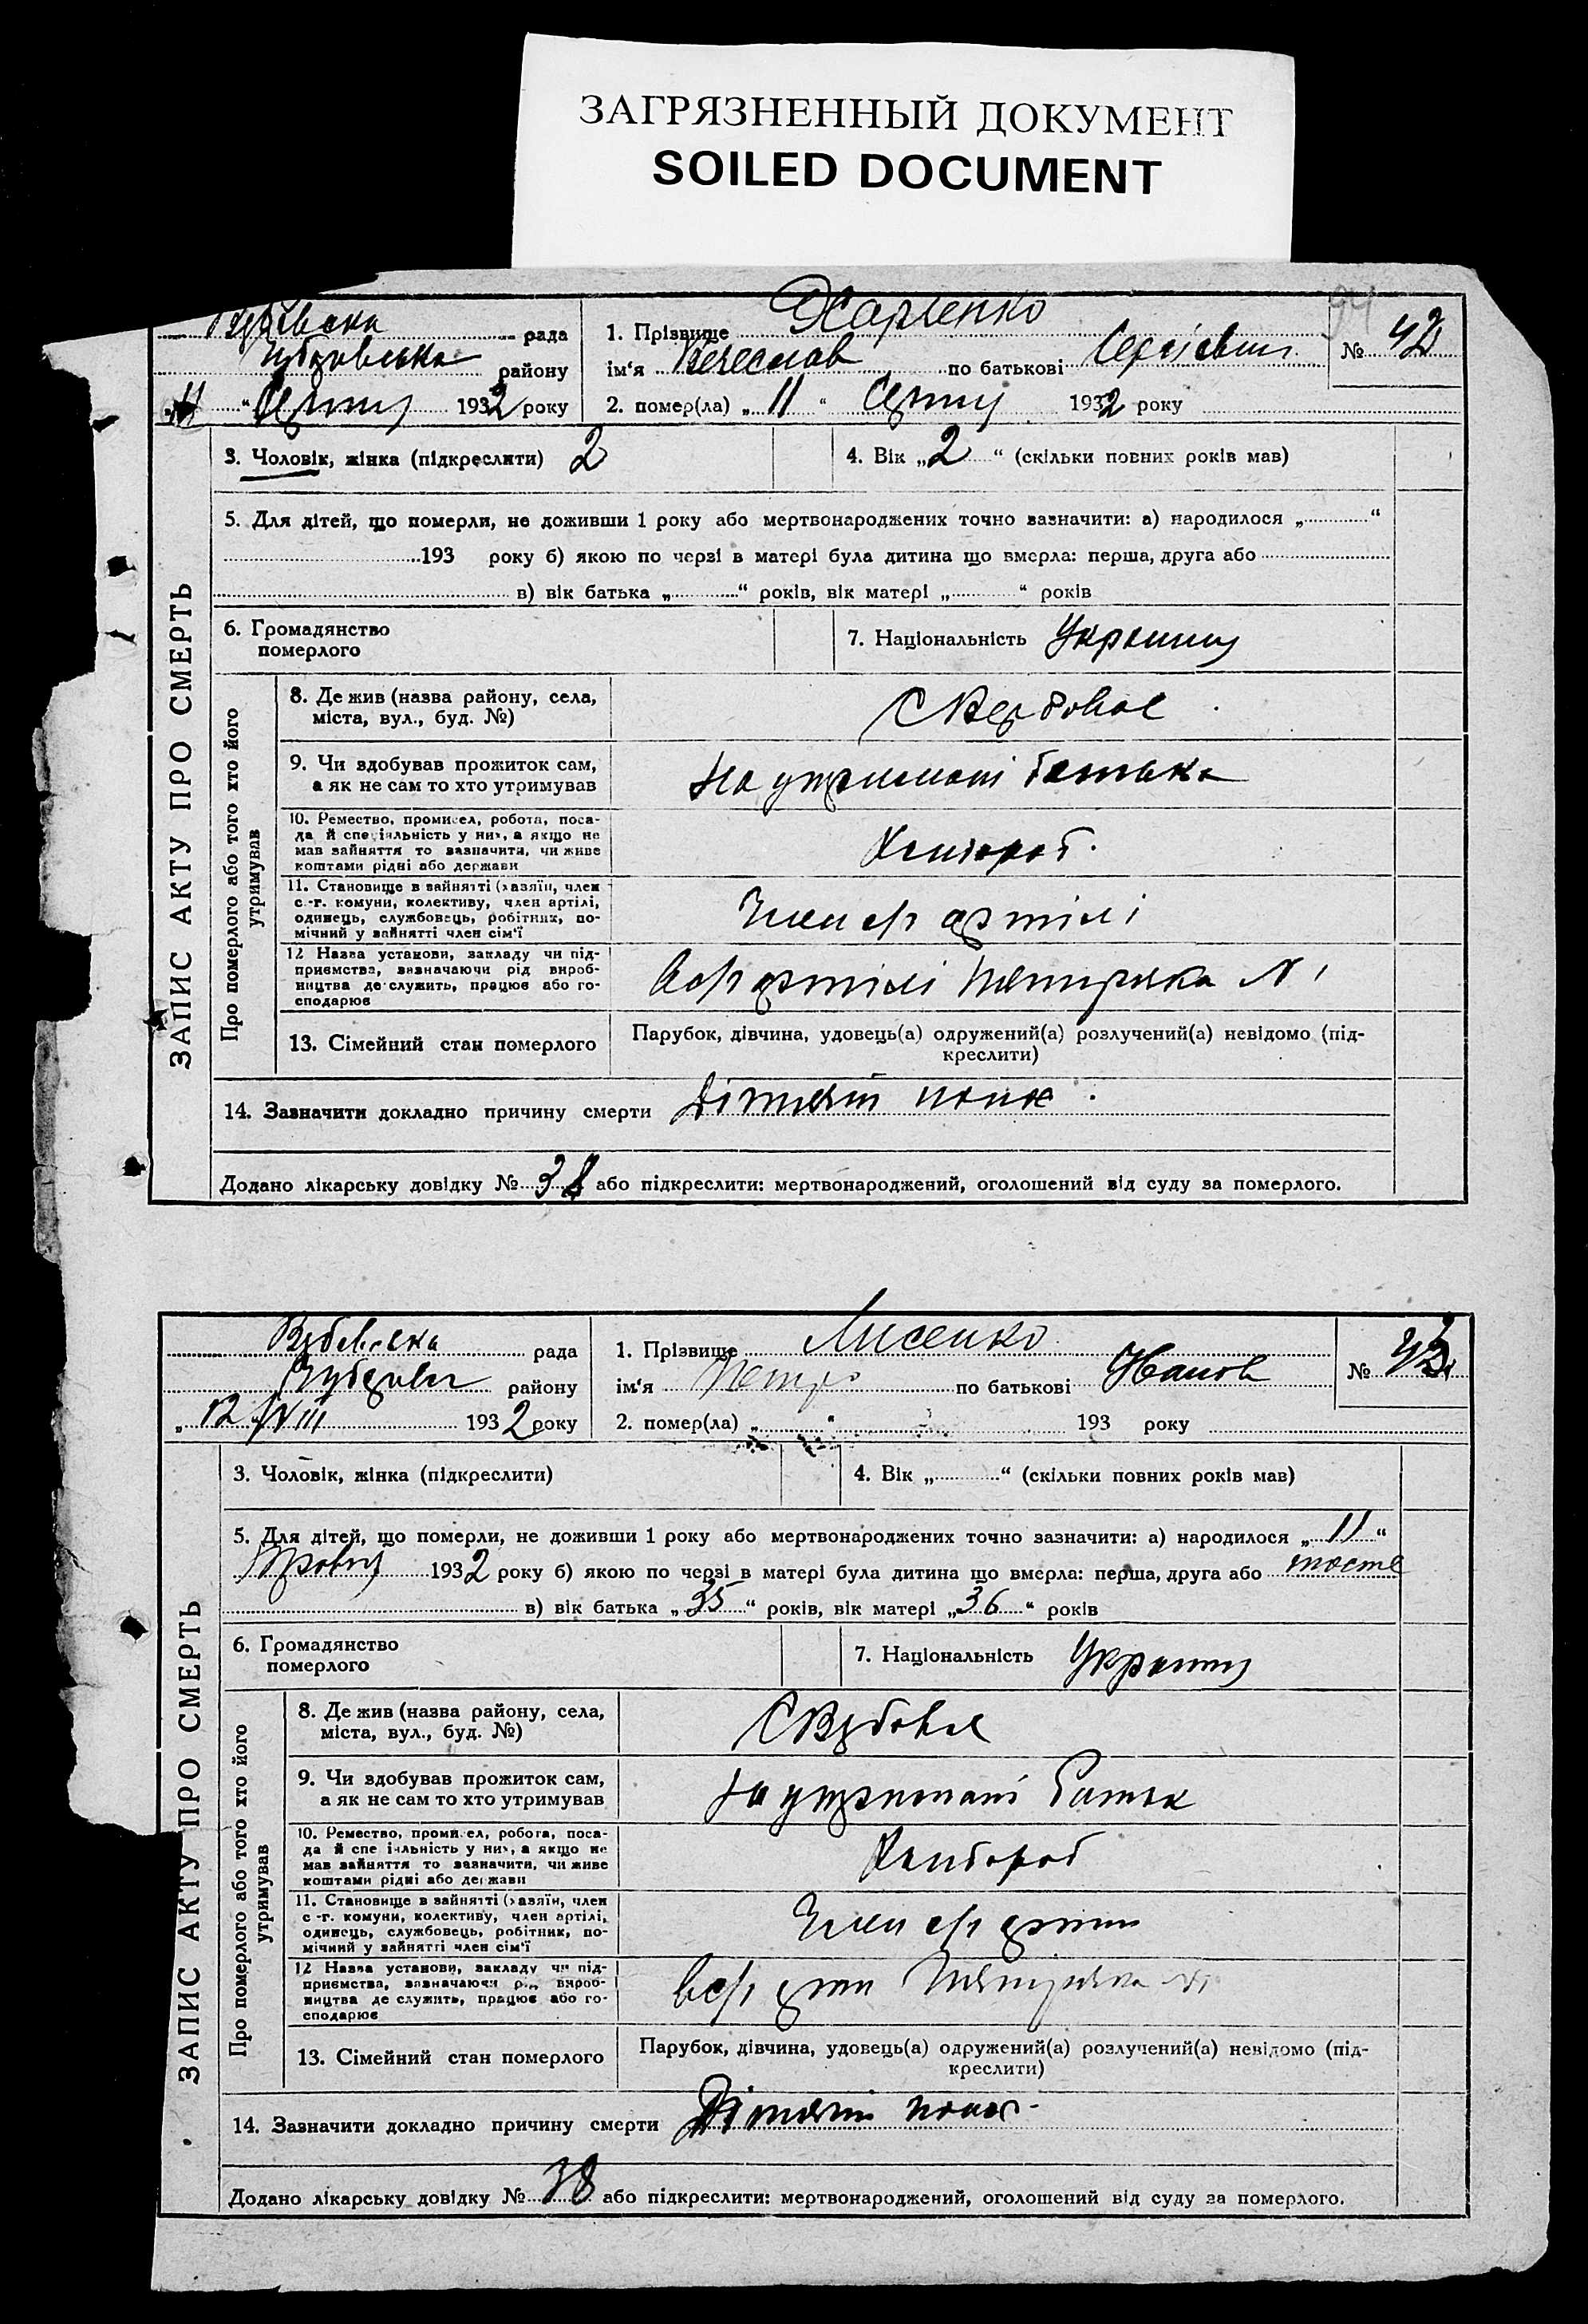 ЗАГРЯЗНЕННЫЙ ДОКУМЕНТ
SOILED DOCUMENT
94
рада
району
11 " Серпня 1932 року
1. Прізвище Харченко
ім'я Вячеслав по батькові Сергієвич
№ 42
2. помер(ла) „ 11 “ Серпня 1932 року
ЗАПИС АКТУ ПРО СМЕРТЬ
3. Чоловік, жінка (підкреслити) 2
4. Вік „ 2 “ (скільки повних років мав)
5. Для дітей, що померли, не доживши 1 року або мертвонароджених точно зазначити: а) народилося „ “
193 року б) якою по черзі в матері була дитина що вмерла: перша, друга або
в) вік батька „ “ років, вік матері „ “ років
6. Громадянство
померлого
7. Національність Українец
Про померлого або того хто його
утримував
8. Де жив (назва району, села,
міста, вул., буд. №)
С Вербовое
9. Чи здобував прожиток сам,
а як не сам то хто утримував
на утриманні батька
10. Ремество, промисел, робота, поса-
да й спеціяльність у них, а якщо не
мав зайняття то зазначити, чи живе
коштами рідні або держави
Хлибороб
11. Становище в зайнятті (хазяїн, член
с.-г. комуни, колективу, член артілі,
одинець, службовець, робітник, по-
мічний у зайнятті член сім'ї
Член с/г артілі
12 Назва установи, закладу чи під-
приємства, зазначаючи рід вироб-
ництва де служить, працює або го-
сподарює
В с/г артілі Петиряка № 1
13. Сімейний стан померлого
Парубок, дівчина, удовець(а) одружений(а) розлучений(а) невідомо (під-
креслити)
14. Зазначити докладно причину смерти Дітячий понос
Додано лікарську довідку № 38 або підкреслити: мертвонароджений, оголошений від суду за померлого.
Вербовська рада
району
„ 12 / VIII 1932 року
1. Прізвище Лисенко
ім'я Петро по батькові Иванов
№ 43
2. помер(ла) „ “ 193 року
ЗАПИС АКТУ ПРО СМЕРТЬ
3. Чоловік, жінка (підкреслити)
4. Вік „ “ (скільки повних років мав)
5. Для дітей, що померли, не доживши 1 року або мертвонароджених точно зазначити: а) народилося „ 11 “
1932 року б) якою по черзі в матері була дитина що вмерла: перша, друга або шосте
в) вік батька „ 35 “ років, вік матері „ 36 “ років
6. Громадянство
померлого
7. Національність Українец
Про померлого або того хто його
утримував
8. Де жив (назва району, села,
міста, вул., буд. №)
С Вербовое
9. Чи здобував прожиток сам,
а як не сам то хто утримував
на утриманні батьк
10. Ремество, промисел, робота, поса-
да й спеціяльність у них, а якщо не
мав зайняття то зазначити, чи живе
коштами рідні або держави
Хлибороб
11. Становище в зайнятті (хазяїн, член
с.-г. комуни, колективу, член артілі,
одинець, службовець, робітник, по-
мічний у зайнятті член сім'ї
Член с/г артил
12 Назва установи, закладу чи під-
приємства, зазначаючи рід вироб-
ництва де служить, працює або го-
сподарює
В с/г арти Петиряка № 1
13. Сімейний стан померлого
Парубок, дівчина, удовець(а) одружений(а) розлучений(а) невідомо (під-
креслити)
14. Зазначити докладно причину смерти Дітячий понос
Додано лікарську довідку № 38 або підкреслити: мертвонароджений, оголошений від суду за померлого.